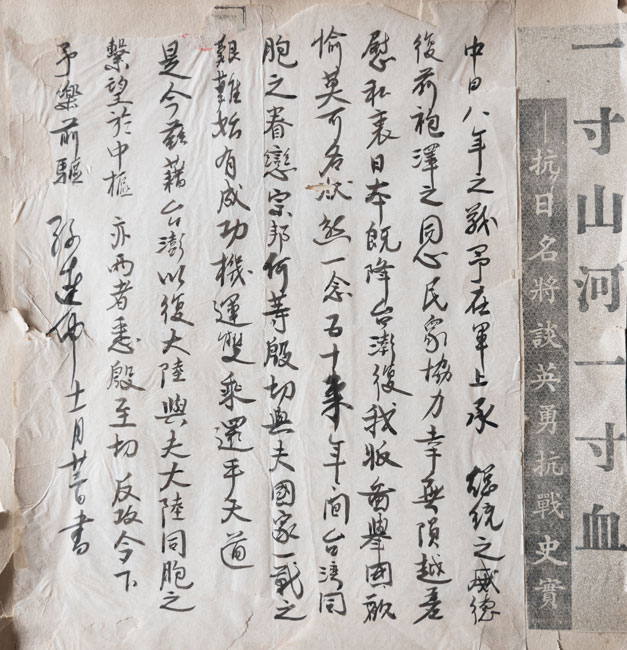 一寸山河一寸血
—抗日名將談英勇抗戰史實
中日八年之戰予在軍上承 總統之威德
後荷袍澤之同心民家協力幸無隕越差
慰私衷日本既降台澎復我版圖舉國歡
愉莫可名狀然一念五十來年間台灣同
胞之眷戀宗邦何等殷切與夫國家一戰之
艱難始有成功機運雙乘還乎天道
是今茲藉台澎以復大陸與夫大陸同胞之
繫望於中樞亦兩者悉殷至切反攻令下
予樂前驅 孫連仲 十一月廿日書